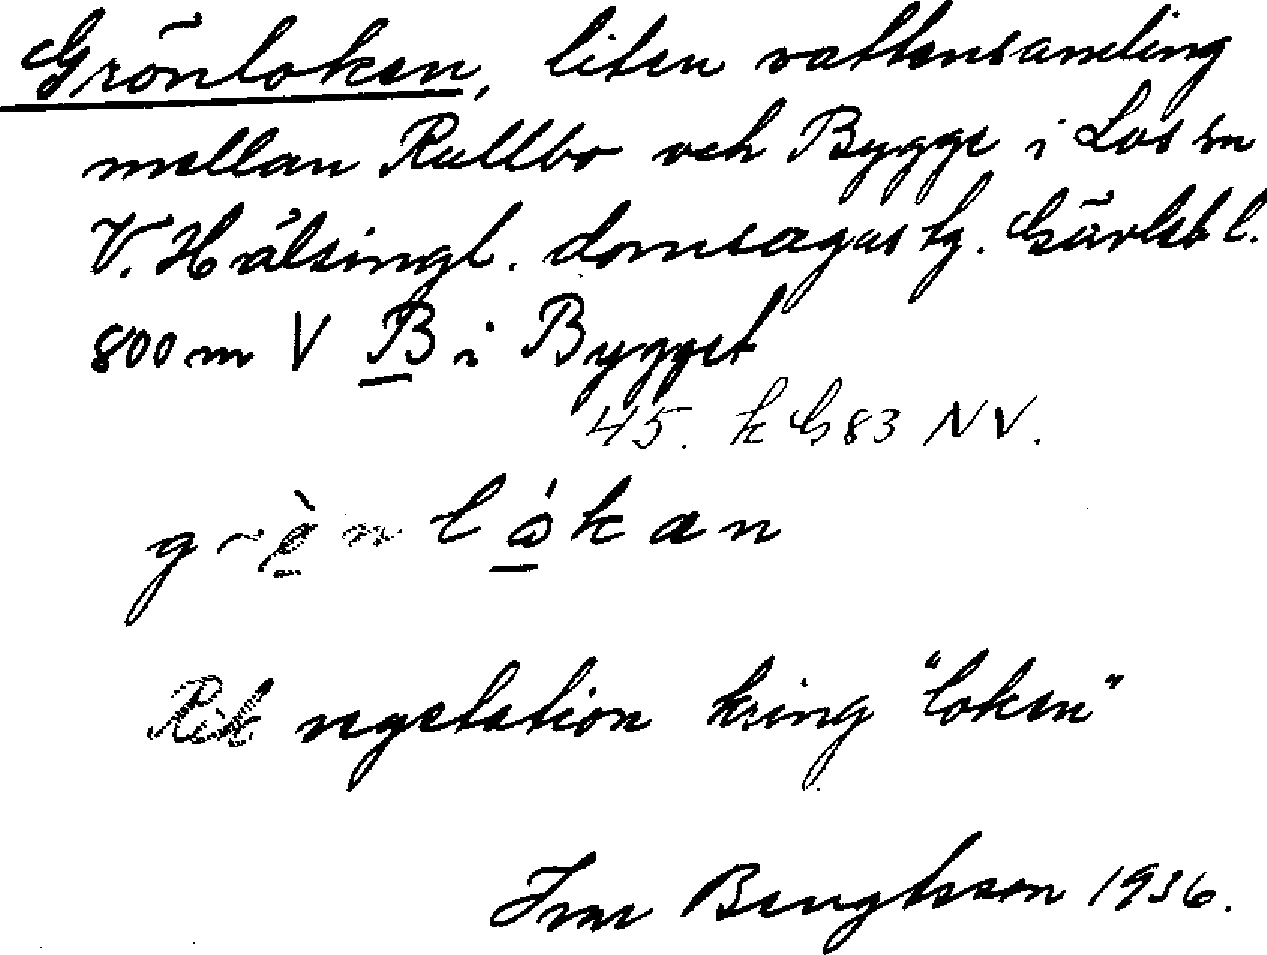 Grönloken, liten vattensamling
mellan Rullbo och Bygge i Los sn
V. Hälsingl. domsagas tg. Gävleb l.
800 m V B i Bygget
45. k G83 NV.
grònlókan
Rik vegetation kring "loken"
Ivar Bengtsson 1936.